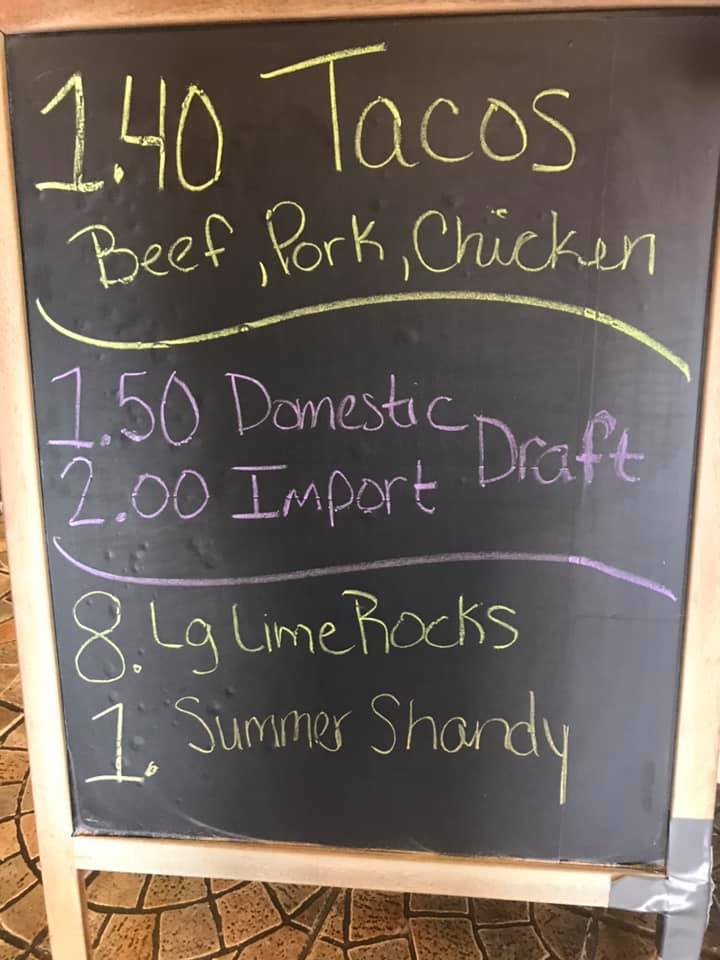 1.40 Tacos
Beef, Pork, Chicken
1.50 Domestic
Draft
2.00 Import
8. Lg Lime Rocks
1. Summer Shandy